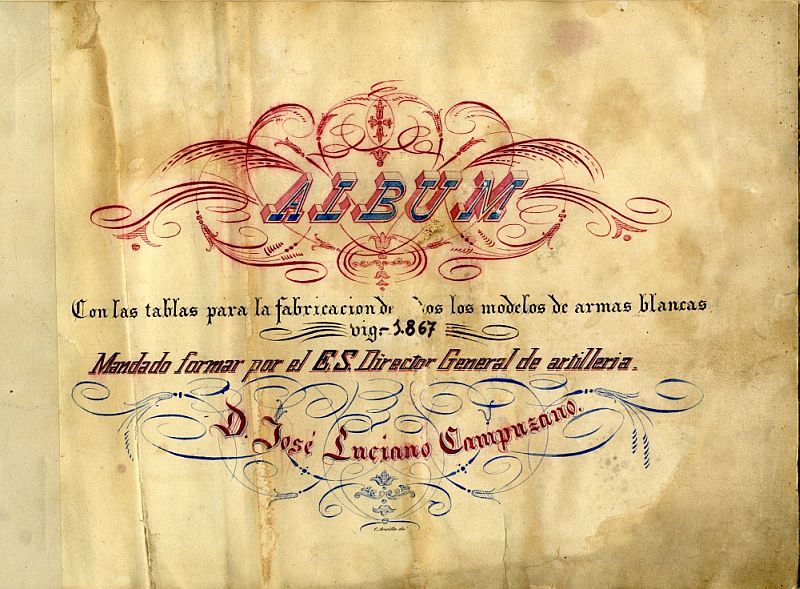 ALBUM
Con las tablas para la fabricacion de los modelos de armas blancas
vig- 1.867
Mandado formar por el E.S. Director General de artilleria.
D. José Luciano Campuzano.